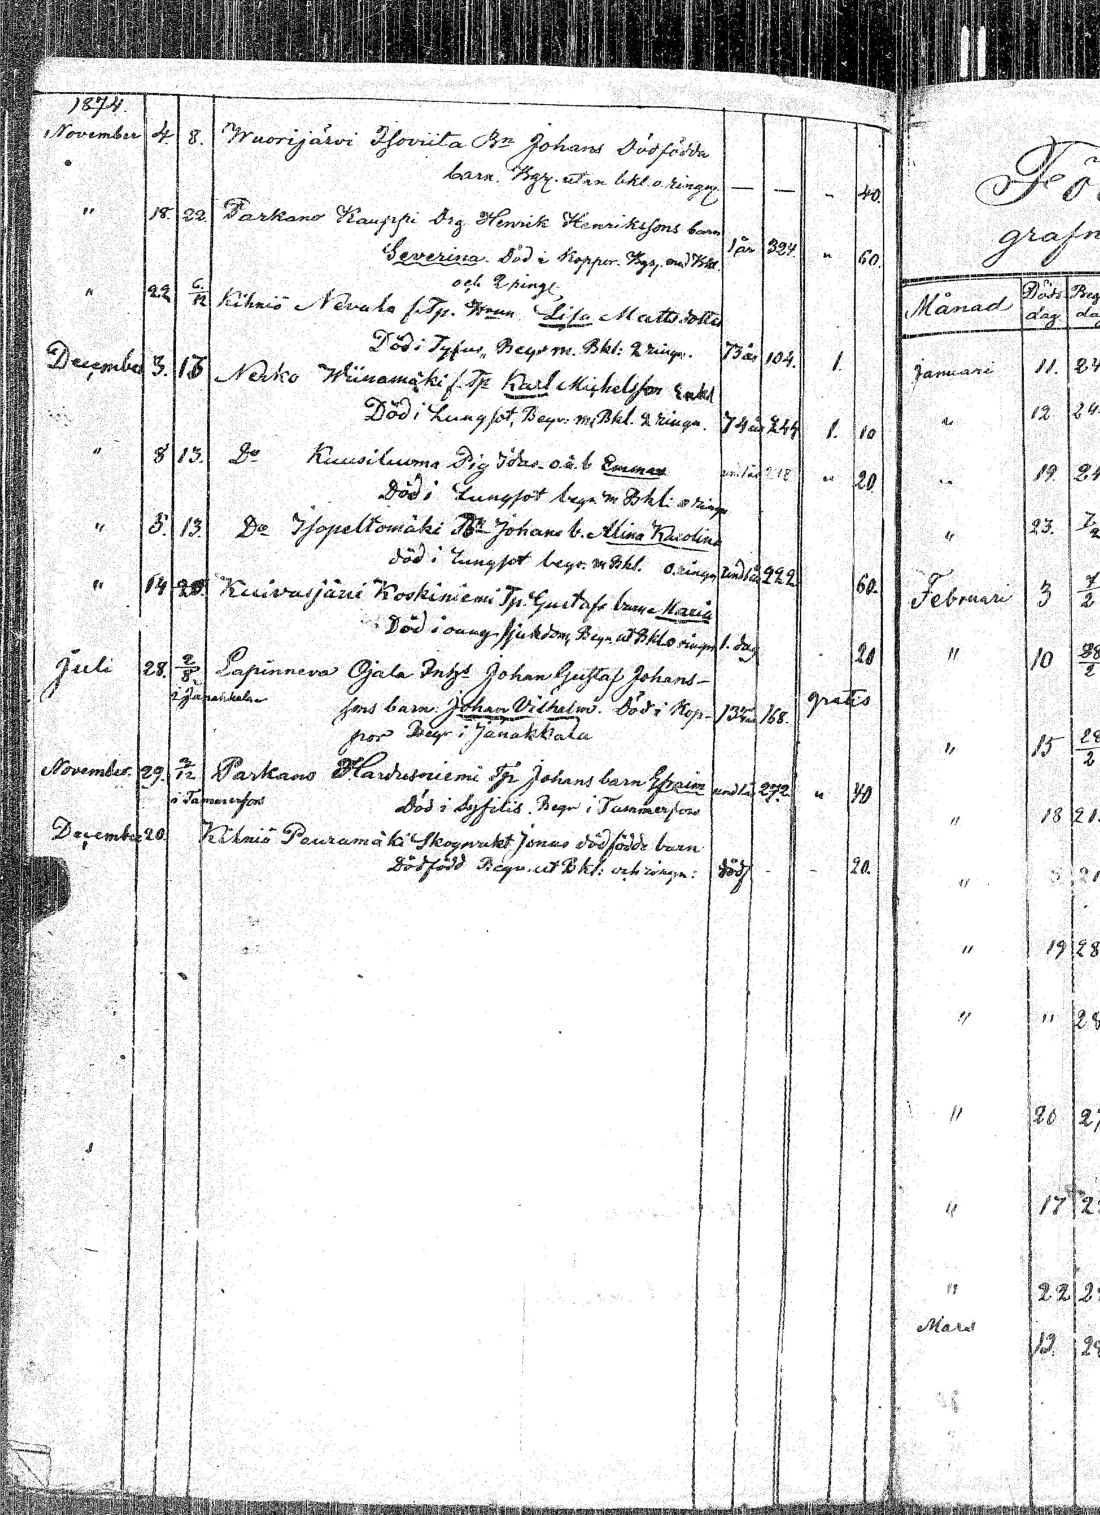 1874.
November 4. 8. Wuorijärvi Isoviita Bn Johans Dödfödda
barn. Bgr. utan bkl. o. ringn. — — „ 40.
" 18. 22. Parkano Kauppi Drg Henrik Henrikssons barn
Severina. Död i Koppor. Bgr. med Bkl. 1 år 324 „ 60.
och 2 ringn.
" 22 6/12 Kihniö Nevala f. Tp. Enkan Lisa Mattsdotter
Död i Tyfus, Begr. m. Bkl: 2 ringn. 73 år 104. 1.
December 3. 13 Nerko Wiinamäki f. Tp Karl Michelsson Enkl
Död i Lungsot, Begr. m. Bkl. 2 ringn. 74 år 244 1. 10
" 8 13. Do Kuusiluoma Pig Idas o.ä. b Emma
Död i Lungsot begr. m Bkl: o ringn „ 20
" 5. 13. Do Isopeltomäki Bn Johans b. Alina Karolina
död i Lungsot begr. m Bkl. o. ringn und. 1 år 222 60.
" 14 20. Kuivasjärvi Koskiniemi Tp. Gustafs barn Maria
Död i sjukdom, Begr. ut Bkl o ringn 1. dag 20
Juli 28. 2/8 Lapinneva Ojala Inhs. Johan Gustaf Johans-
i Janakkala
sons barn. Johan Vilhelm. Död i Kop- 13 168. gratis
por Begr i Janakkala
November. 29. 2/12 Parkano Hardusniemi Tp Johans barn Efraim und 1 år 272. „ 40
i Tammerfors
Död i Syfilis. Begr i Tammerfors
December 20. Kihniö Pauramäki Skogsvakt Jonas dödfödde barn
Dödfödd Begr. ut Bkl: och ringn: dödf - - 20.
Fö
grafn
Månad Döds-dag Beg dag
Januari 11. 24
" 12. 24.
" 19. 24
" 23. 7/2
Februari 3 7/2
" 10 28/2
" 15 28/2
" 18 21.
" 21
" 19 28
" " 28
" 20 27
" 17 2
" 22 2
Mars
12. 28